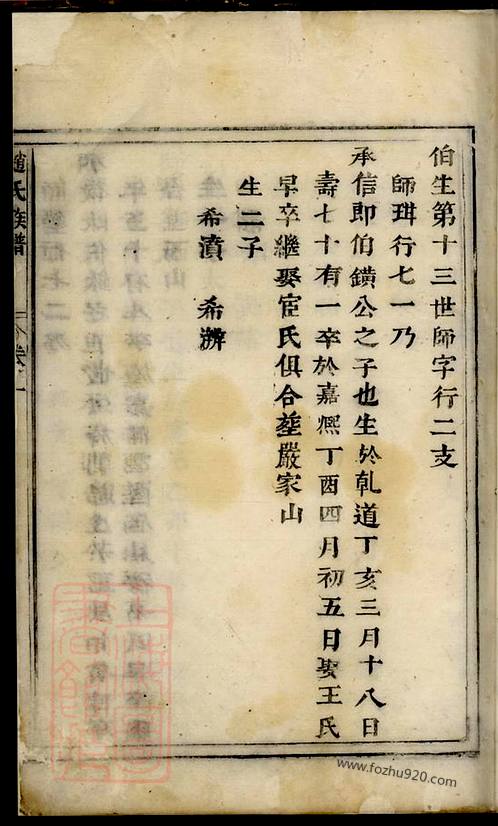 伯生第十三世師字行二支
師珥行七一乃
承信郎伯鐄公之子也生於乹道丁亥三月十八日
壽七十有一卒於嘉熈丁酉四月初五日娶王氏
早卒継娶宦氏俱合塟嚴家山
生二子
希濆 希濟
趙氏族譜
www.fozhu920.com